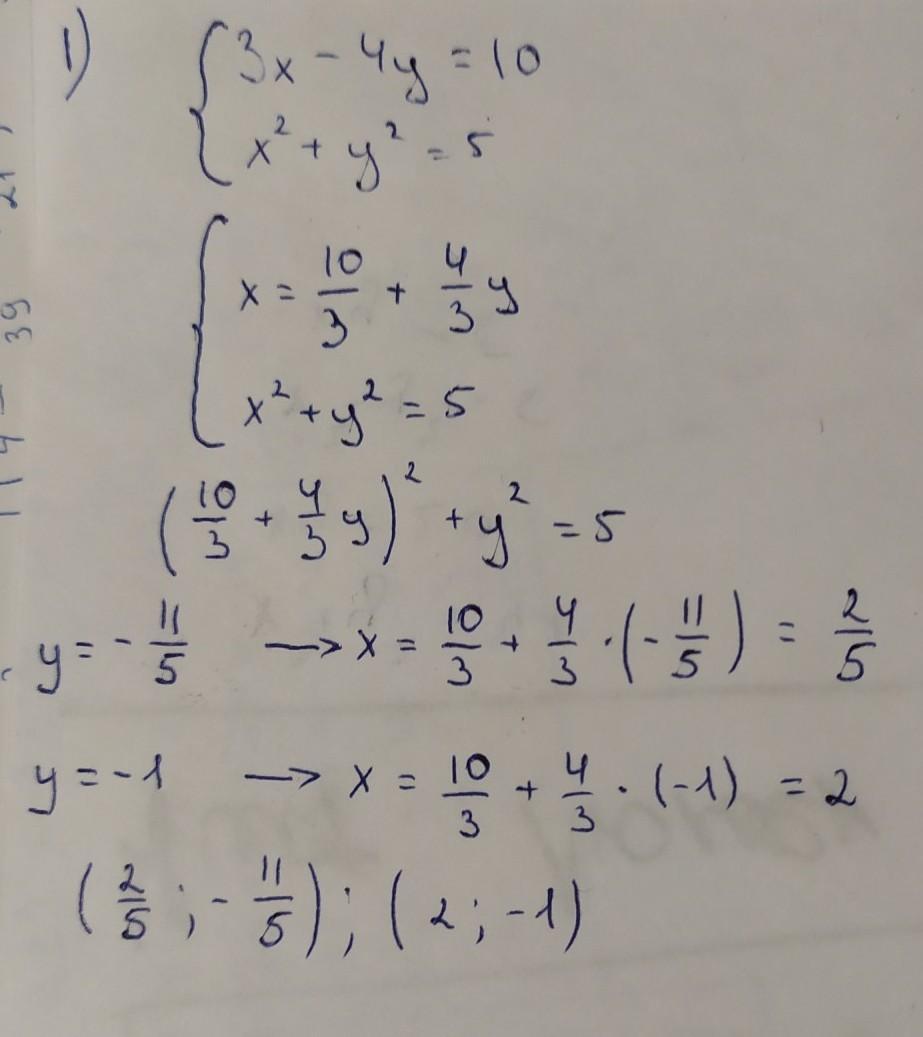 1) { 3x - 4y = 10
x² + y² = 5
{ x = 10/3 + 4/3 y
x² + y² = 5
(10/3 + 4/3 y)² + y² = 5
y = - 11/5 → x = 10/3 + 4/3 · (- 11/5) = 2/5
y = -1 → x = 10/3 + 4/3 · (-1) = 2
(2/5 ; - 11/5) ; (2 ; -1)
39